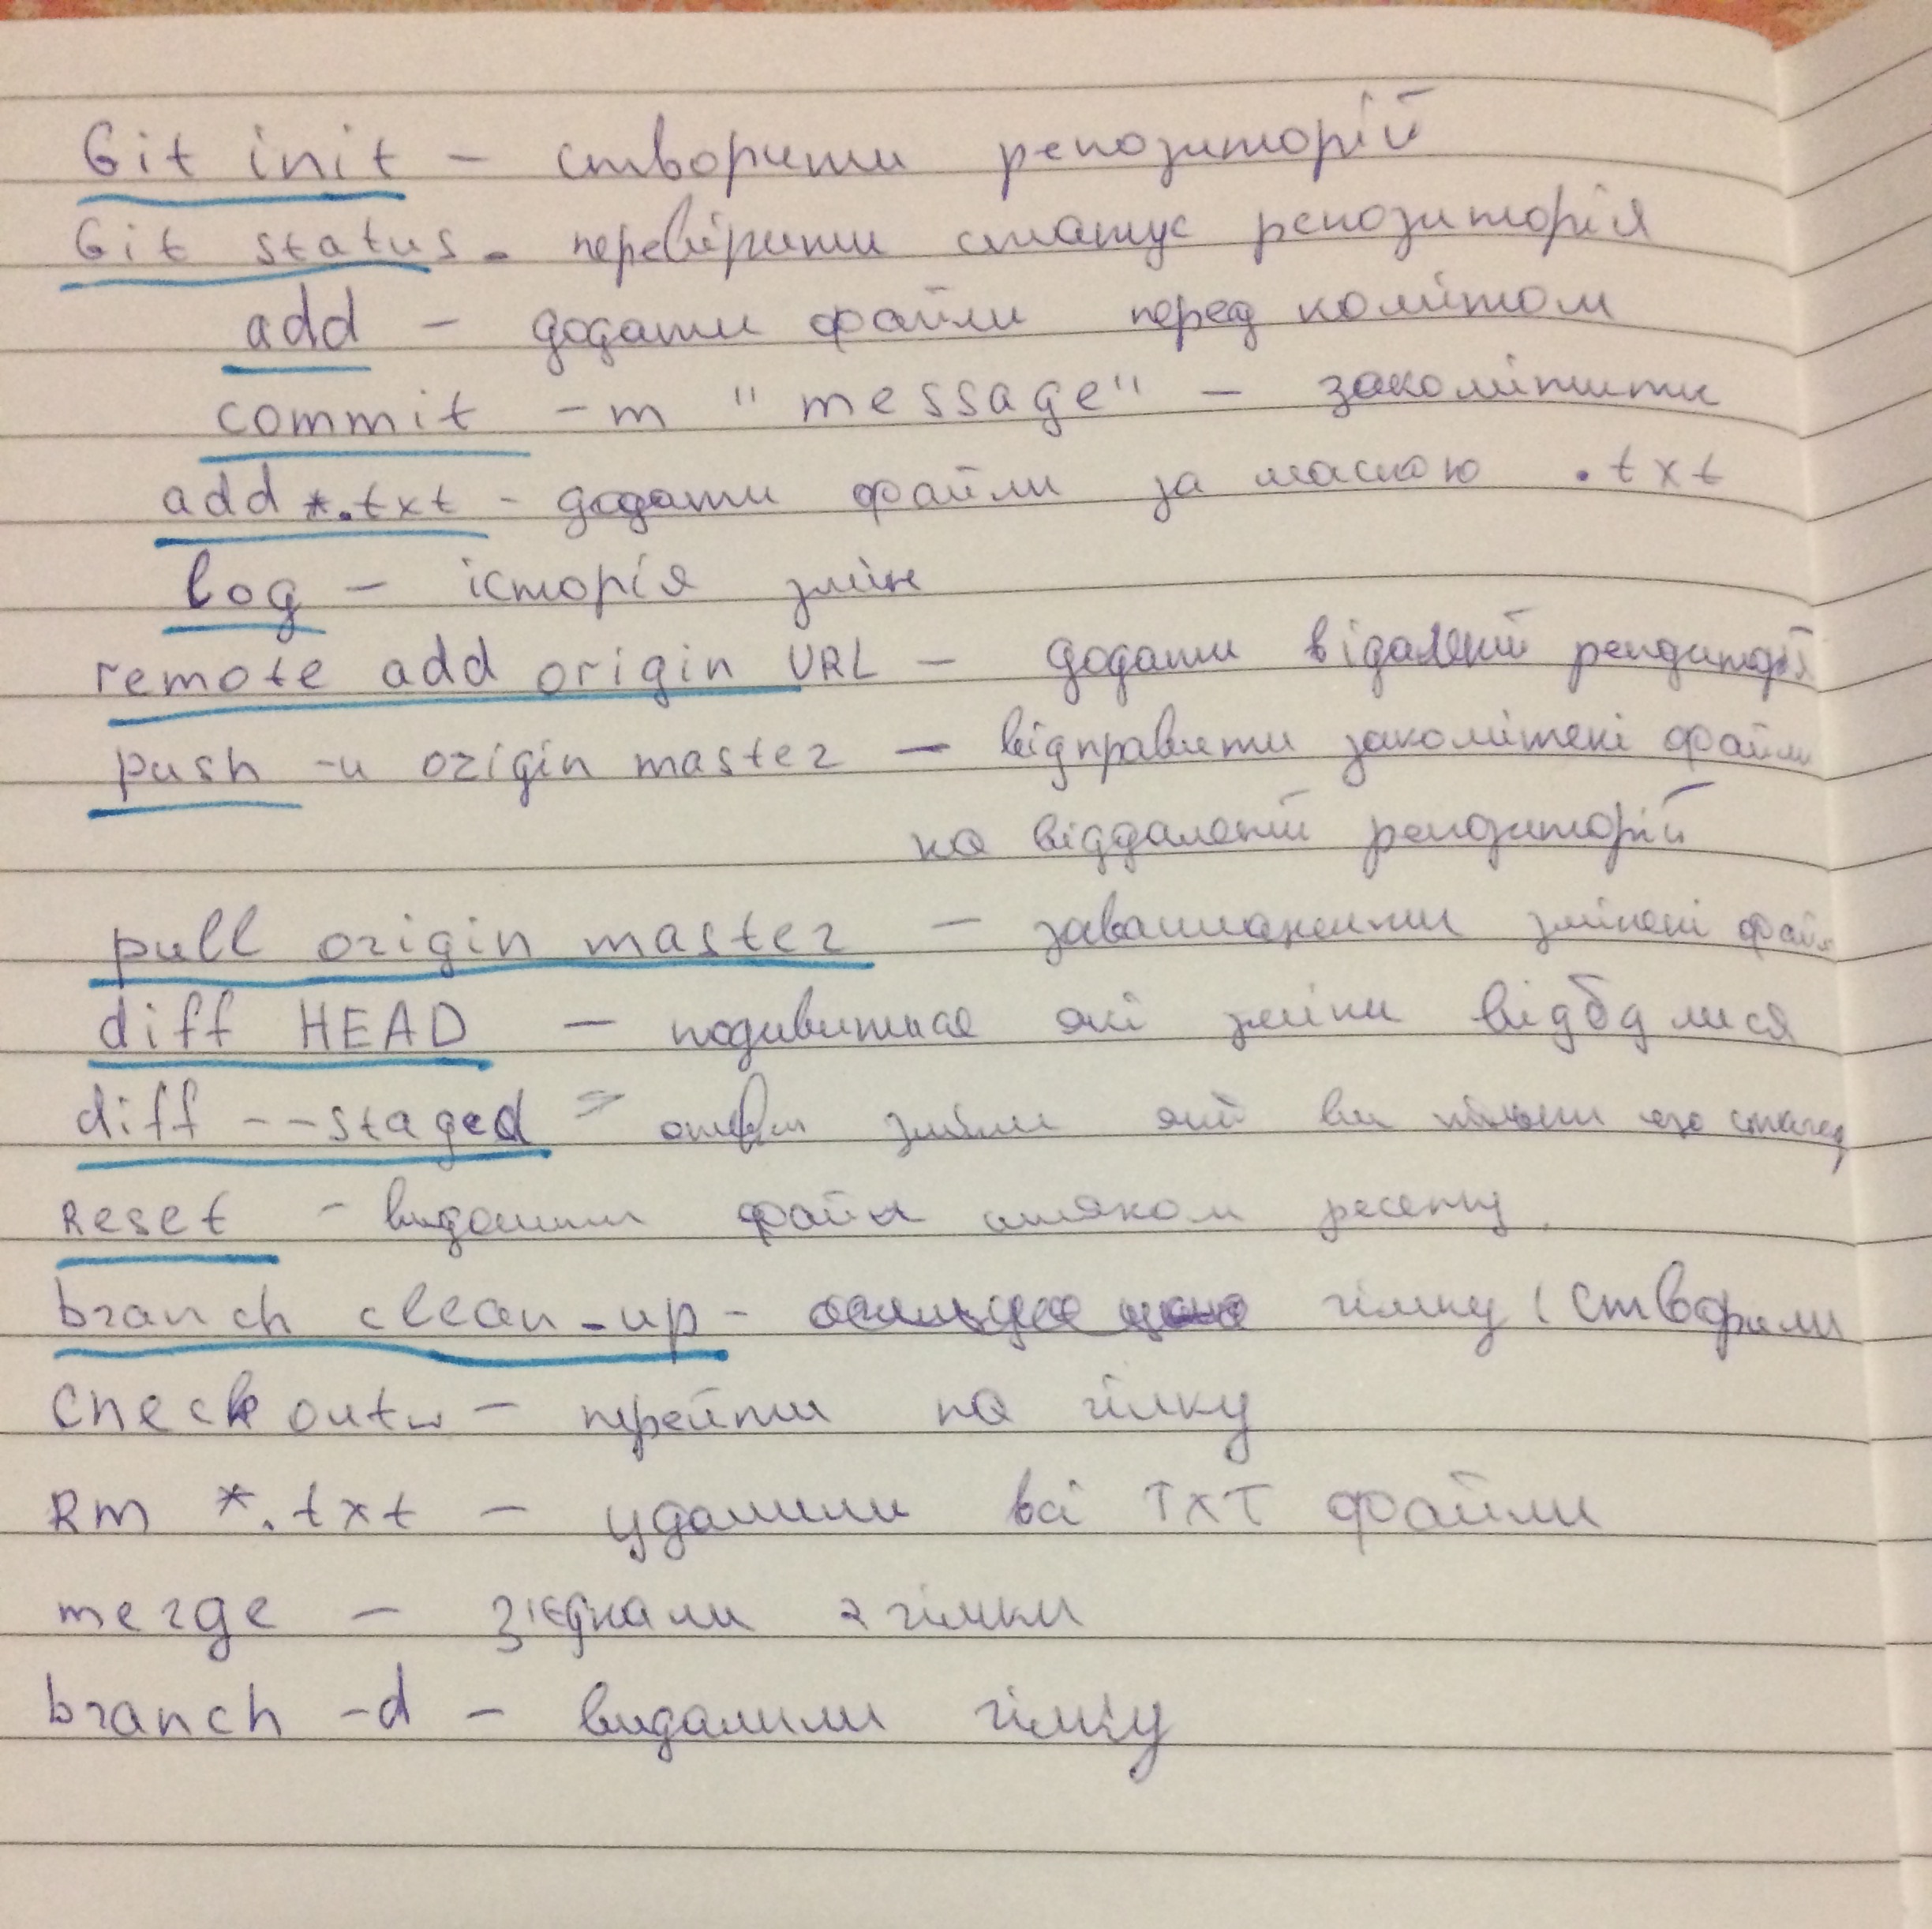 Git init – створити репозиторій
Git status - перевірити статус репозиторія
add – додати файли перед комітом
commit -m "message" – закомітити
add *.txt - додати файли за маскою .txt
log – історія змін
remote add origin URL – додати відалений
push -u origin master – відправити закомітені файли
на віддалений
pull origin master – завантажити змінені файл
diff HEAD – подивитися які зміни відбулися
diff --staged = зміни які ви
Reset - видалити файл шляхом ресету.
branch clean-up - гілку (створили
Checkout – перейти на гілку
Rm *.txt – удалили всі TXT файли
merge – зієднали 2 гілки
branch -d – видалили гілку